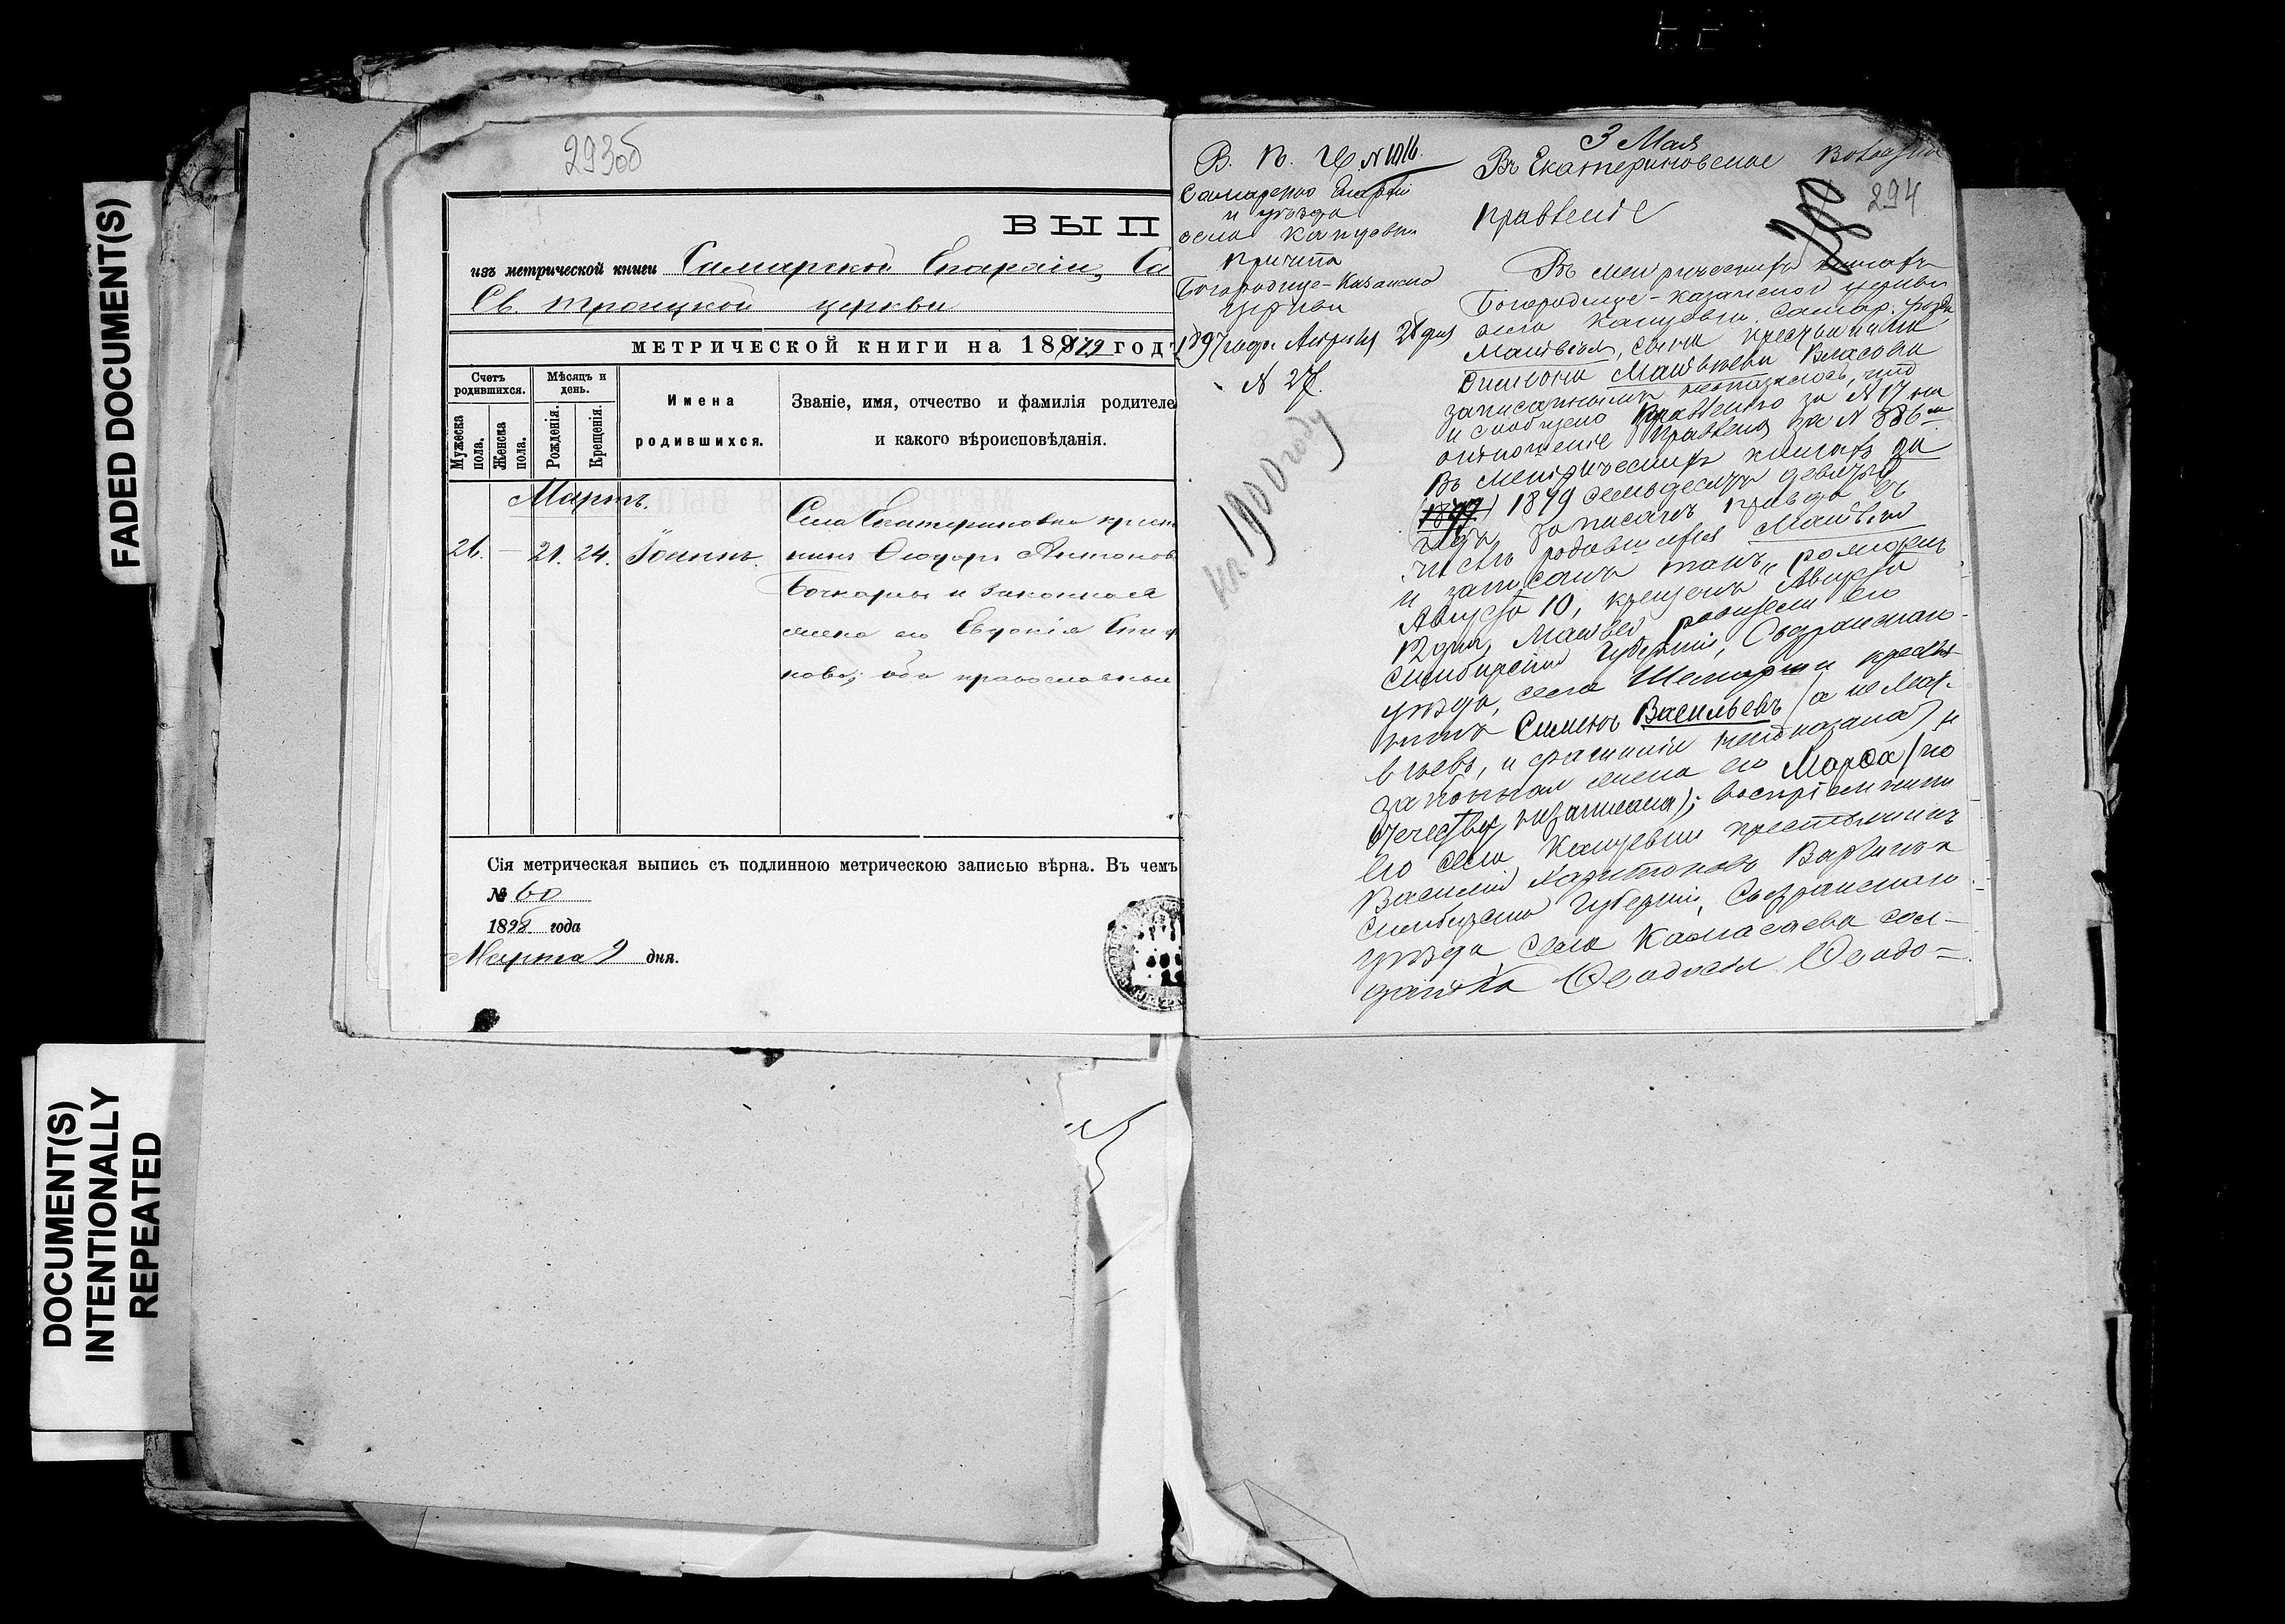 FADED DOCUMENT(S)
DOCUMENT(S)
INTENTIONALLY
REPEATED
293об
ВЫП
изъ метрической книги Самарской Епархіи, Са
Св. Троицкой церкви
МЕТРИЧЕСКОЙ КНИГИ НА 1879 ГОД
Счетъ родившихся.
Мѣсяцъ и день.
Мужеска пола.
Женска пола.
Рожденія.
Крещенія.
Имена родившихся.
Званіе, имя, отчество и фамилія родителе
и какого вѣроисповѣданія.
Мартъ.
26. — 21. 24. Іоаннъ.
Села Екатериновки крест
нинъ Ѳеодоръ Антонов
Бочкаревъ и законная
жена его Евдокія
нова; оба православные
Сія метрическая выпись съ подлинною метрическою записью вѣрна. Въ чемъ
№ 60
1898 года
Марта 9 дня.
3 Мая
В. П. И. № 1016.
Самарской Епархіи
и уѣзда
села Кануевки
Причта
Богородице-Казанской
церкви
1897 года Апрѣля 28 дня
№ 27.
на 1900 году
294
Въ Екатериновское Волостное
правленіе
Въ метрическихъ книгахъ
Богородице-Казанской церкви
села Кануевки Самар. уѣзда
Матвѣя, сына крестьянина
Симеона Матвѣева Власова
записаннымъ неоказалось, что
и сообщено Правленію за № 17 на
отношеніе Правленія за № 886
Въ метрическихъ книгахъ за
1879 семьдесятъ девятый
годъ записанъ правда въ
числѣ родившихся Матвѣй
и записанъ такъ „рожденъ
Августа 10, крещенъ Августа
12 дня, Матвѣй родители его
Симбирской Губерніи, Сызранскаго
уѣзда, села крестья
нинъ Симеонъ Васильевъ (а не Мат-
вѣевъ, и фамиліи непоказана) и
законная жена его Марѳа (по
отчеству незаписана); воспріемники
его села Кануевки крестьянинъ
Василій Харитоновъ и
Симбирской Губерніи, Сызранскаго
уѣзда, села сол-
датка Ѳеодосія Ѳеодо=